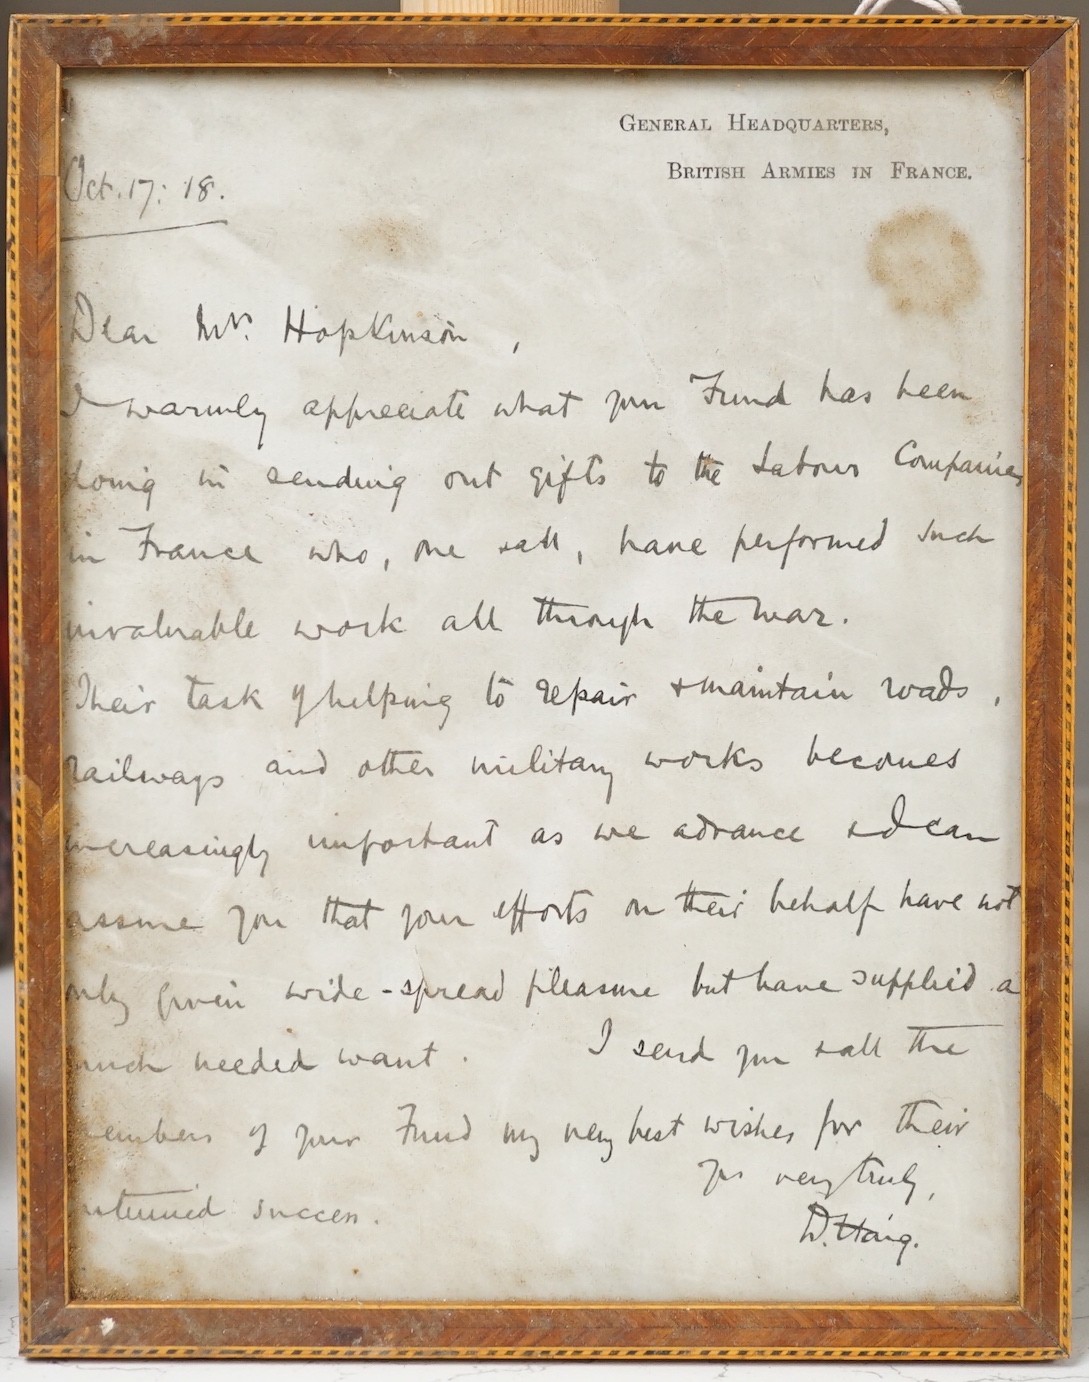 General Headquarters,
British Armies in France.
Oct. 17: 18.
Dear Mr. Hopkinson,
I warmly appreciate what your Fund has been
doing in sending out gifts to the Labour Companies
in France who, one & all, have performed such
invaluable work all through the war.
Their task of helping to repair & maintain roads,
railways and other military works becomes
increasingly important as we advance & I can
assure you that your efforts on their behalf have not
only given wide-spread pleasure but have supplied a
much needed want. I send you & all the
members of your Fund my very best wishes for their
continued success.
Yrs very truly,
D. Haig.